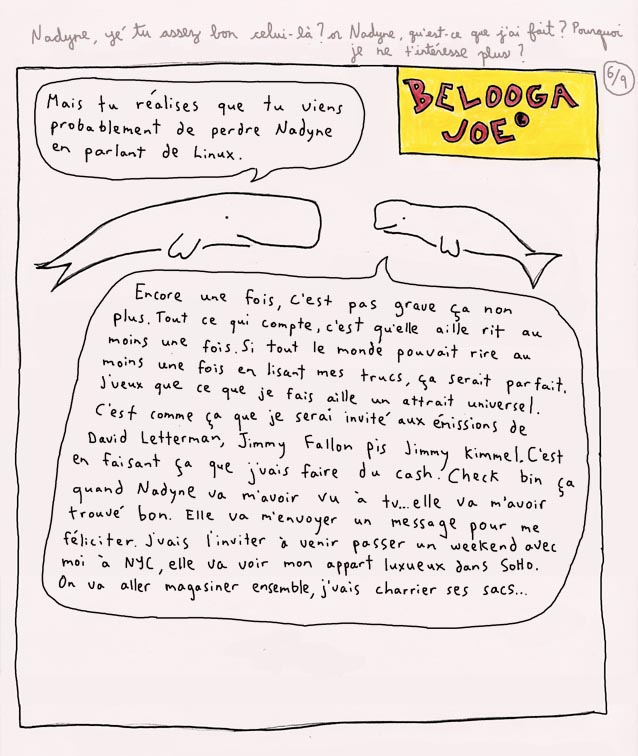 Nadyne, yé tu assez bon celui-là? or Nadyne, qu'est-ce que j'ai fait? Pourquoi
je ne t'intéresse plus?
6/9
BELOOGA
JOE
Mais tu réalises que tu viens
probablement de perdre Nadyne
en parlant de Linux.
Encore une fois, c'est pas grave ça non
plus. Tout ce qui compte, c'est qu'elle aille rit au
moins une fois. Si tout le monde pouvait rire au
moins une fois en lisant mes trucs, ça serait parfait.
J'veux que ce que je fais aille un attrait universel.
C'est comme ça que je serai invité aux émissions de
David Letterman, Jimmy Fallon pis Jimmy Kimmel. C'est
en faisant ça que j'vais faire du cash. Check bin ça
quand Nadyne va m'avoir vu à tv...elle va m'avoir
trouvé bon. Elle va m'envoyer un message pour me
féliciter. J'vais l'inviter à venir passer un weekend avec
moi à NYC, elle va voir mon appart luxueux dans SoHo.
On va aller magasiner ensemble, j'vais charrier ses sacs...